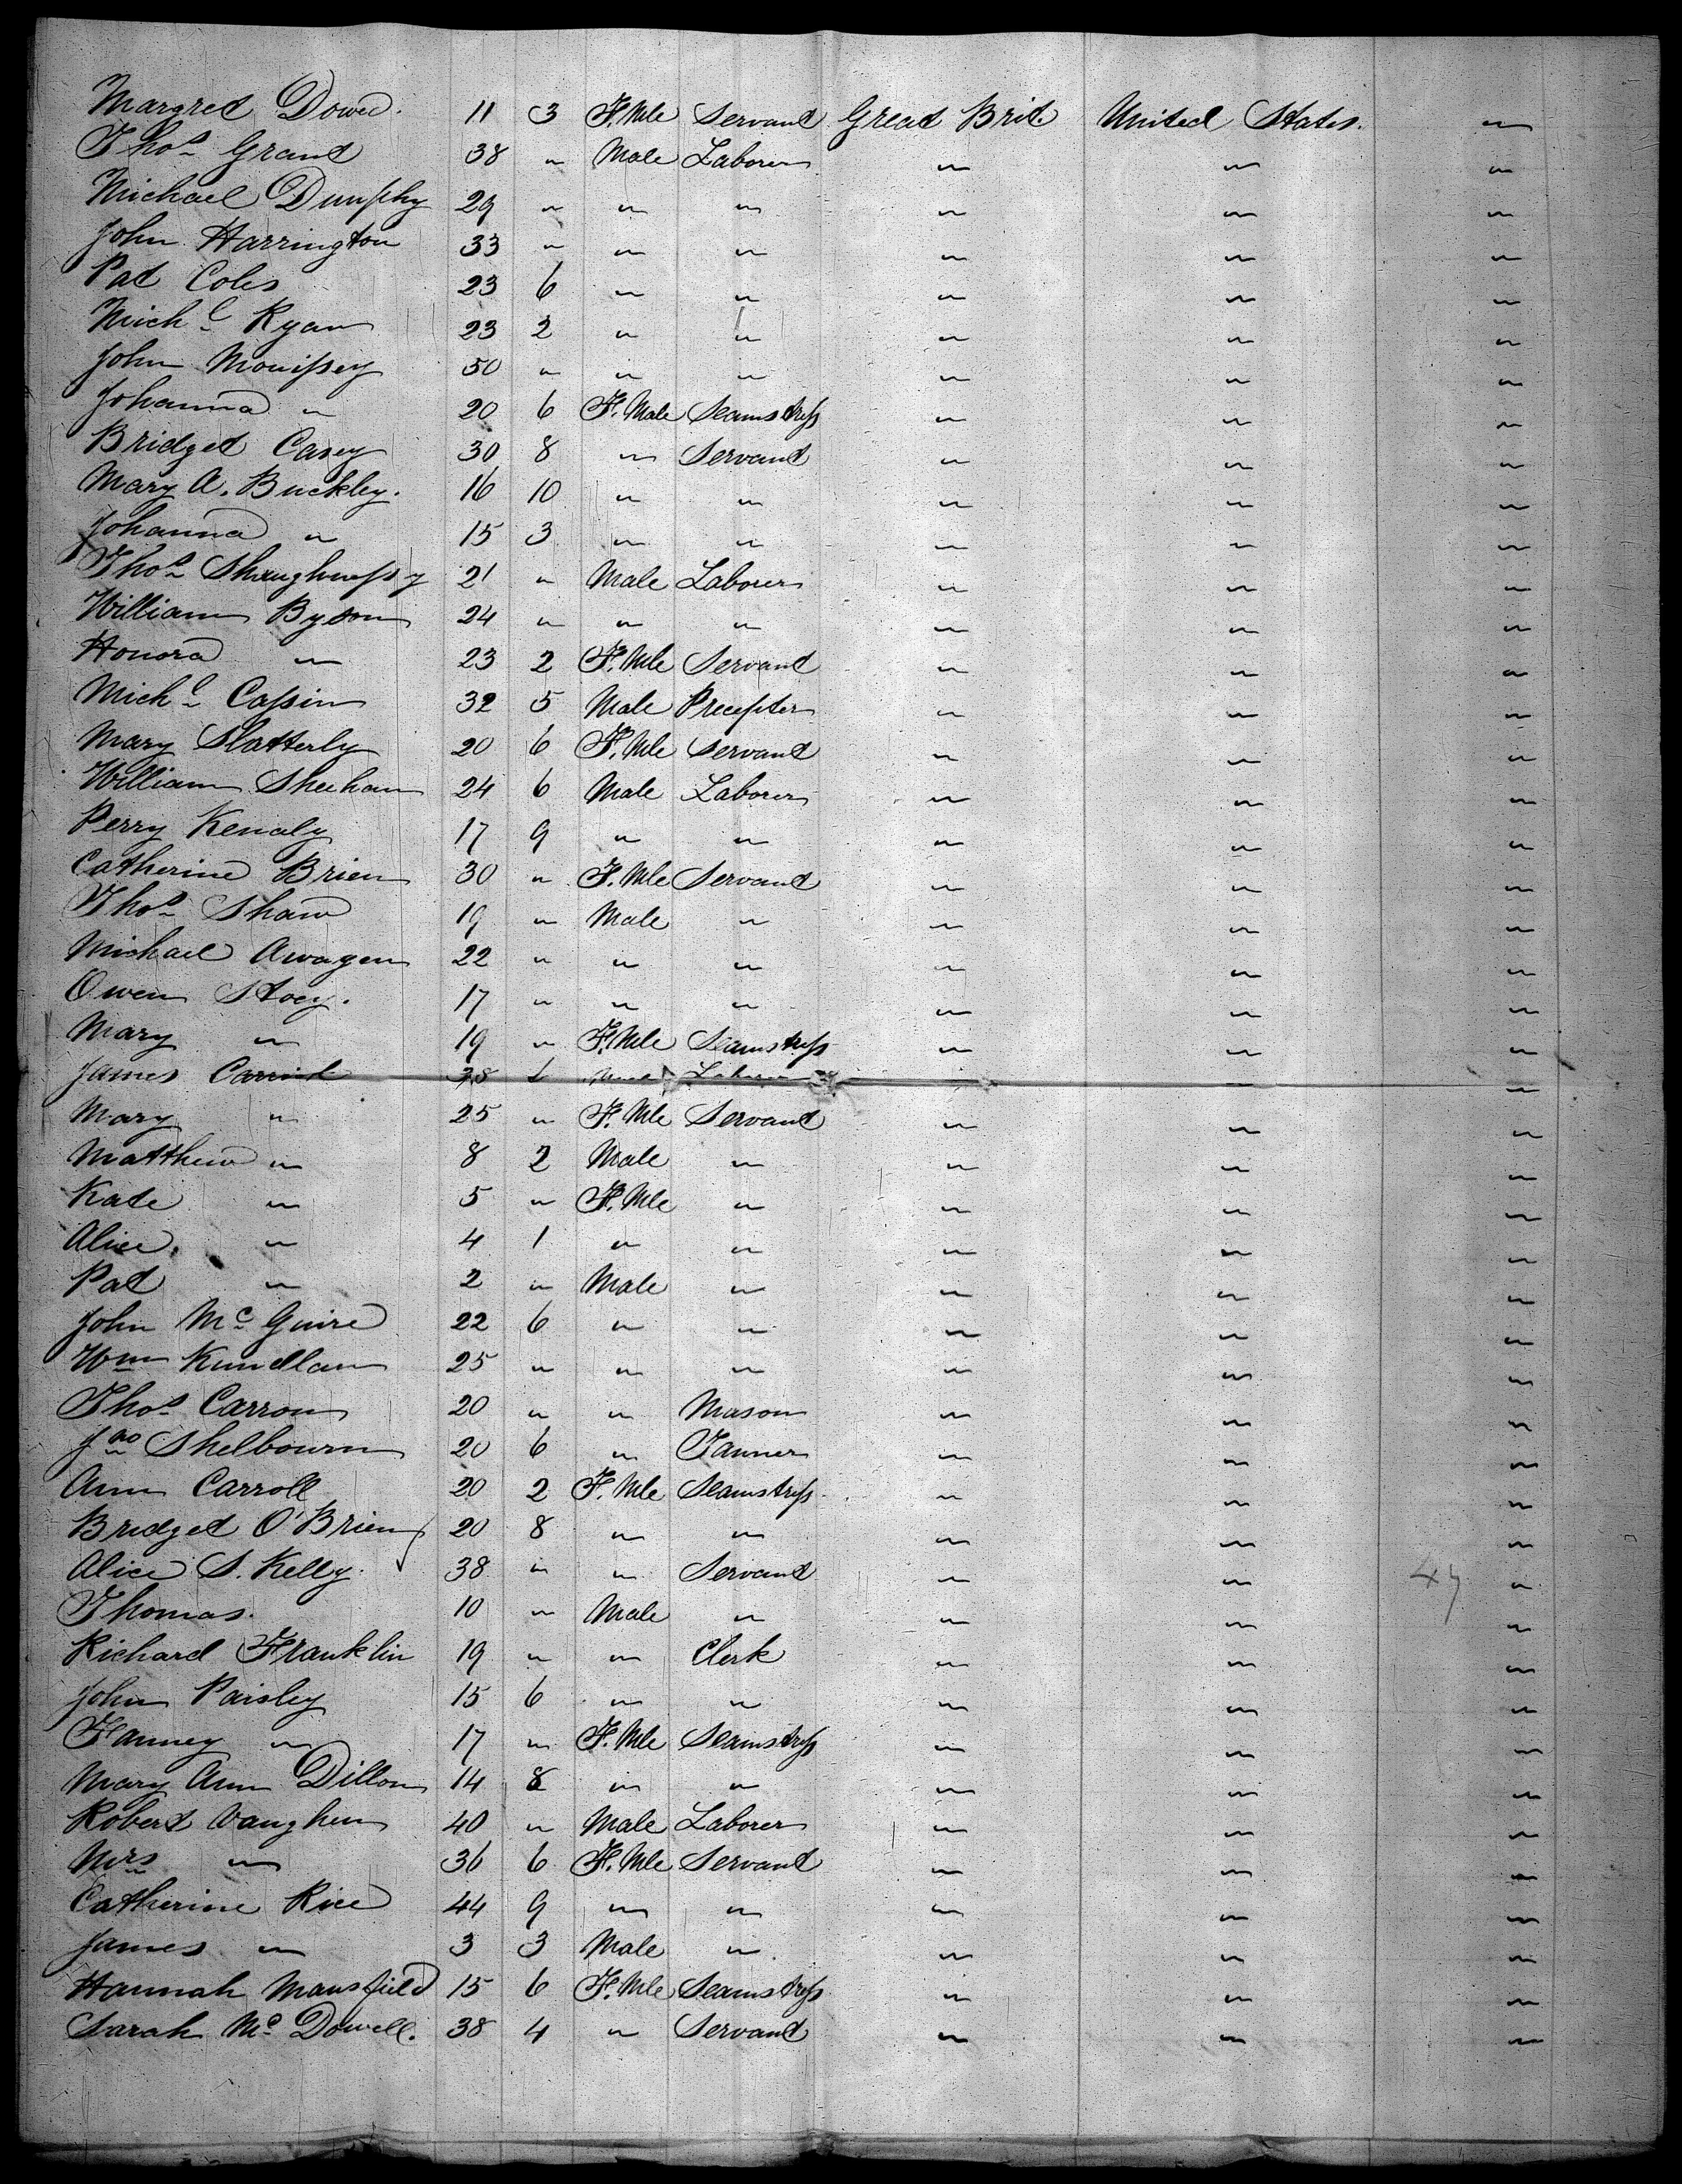 Margred Dowd. 11 3 F.Mle Servant Great Brit. United States. "
Thos Grant 38 " Male Laborer " " "
Michael Dunphy 29 " " " " " "
John Harrington 33 " " " " " "
Pat Coles 23 6 " " " " "
Michl Ryan 23 2 " " " " "
John Morrissey 50 " " " " " "
Johanna " 20 6 F.Male Seamstress " " "
Bridget Casey 30 8 " Servant " " "
Mary A. Buckley. 16 10 " " " " "
Johanna " 15 3 " " " " "
Thos Shaughnessy 21 " Male Laborer " " "
William Byson 24 " " " " " "
Honora " 23 2 F.Mle Servant " " "
Michl Cassin 32 5 Male Precepter " " "
Mary Slatterly 20 6 F.Mle Servant " " "
William Sheehan 24 6 Male Laborer " " "
Perry Kenaly 17 9 " " " " "
Catherine Brien 30 " F.Mle Servant " " "
Thos Shaw 19 " Male " " " "
Michael Awagen 22 " " " " " "
Owen Stoey. 17 " " " " " "
Mary " 19 " F.Mle Seamstress " " "
James 38 Laborer "
Mary " 25 " F.Mle Servant " " "
Matthew " 8 2 Male " " " "
Kate " 5 " F.Mle " " " "
Alice. " 4 1 " " " " "
Pat " 2 " Male " " " "
John McGuire 22 6 " " " " "
Wm Kundlan 25 " " " " " "
Thos Carron 20 " " Mason " " "
Jno Shelbourn 20 6 " Tanner " " "
Ann Carroll 20 2 F.Mle Seamstress " " "
Bridget O'Brien 20 8 " " " " "
Alice S. Kelly. 38 " " Servant " " 47 "
Thomas. 10 " Male " " " "
Richard Franklin 19 " " Clerk " " "
John Paisley 15 6 " " " " "
Fanney " 17 " F.Mle Seamstress " " "
Mary Ann Dillon 14 8 " " " " "
Robert Vaughen 40 " Male Laborer " " "
Mrs " 36 6 F.Mle Servant " " "
Catherine Rice 44 9 " " " " "
James " 3 3 Male " " " "
Hannah Mansfield 15 6 F.Mle Seamstress " " "
Sarah McDowell. 38 4 " Servant " " "